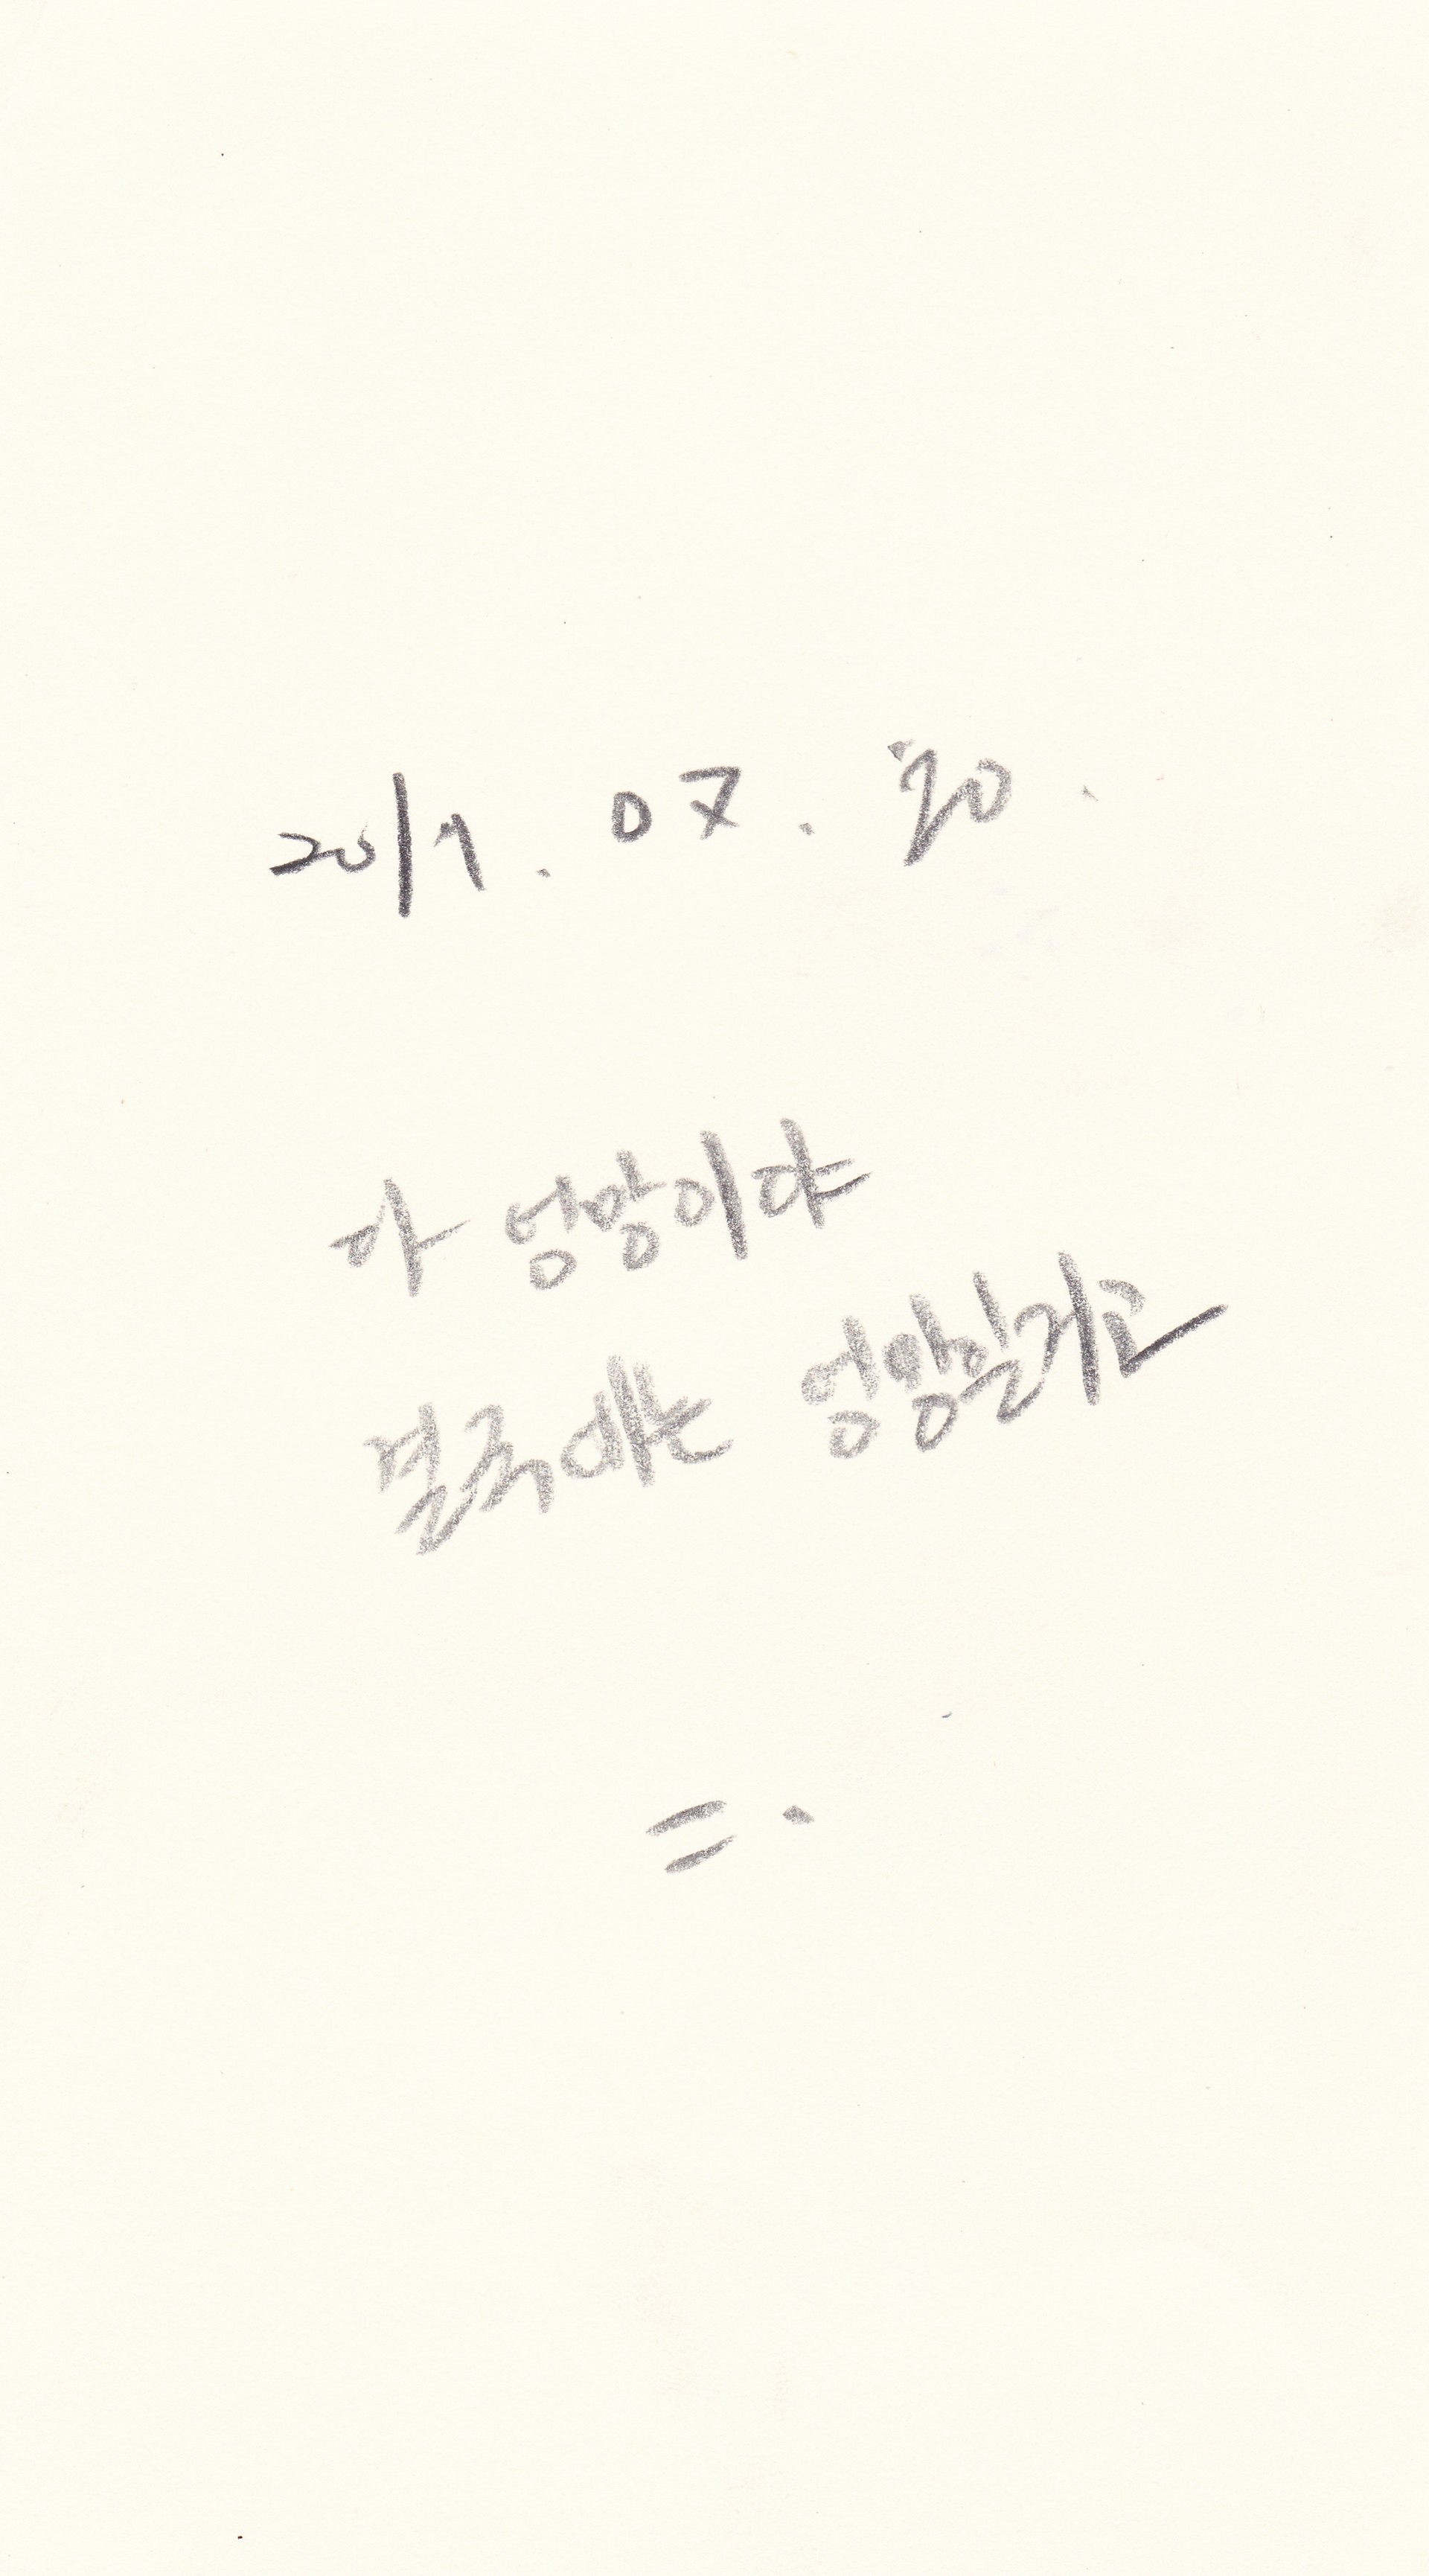 2017. 07. 20.
다 엉망이야
결국에는 엉망일거고
=.